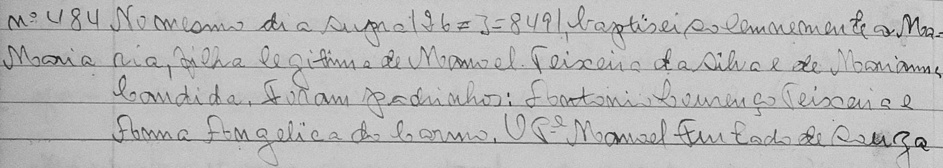 nº 484 No mesmo dia supra (26=3=849), baptisei solemnemente a Ma-
Maria pia, filha legitima de Manoel Teixeira da Silva e de Marianna
Candida. Foram padrinhos: Antonio Lourenço Teixeira e
Anna Angelica do Carmo. O Pe Manoel Furtado de Souza